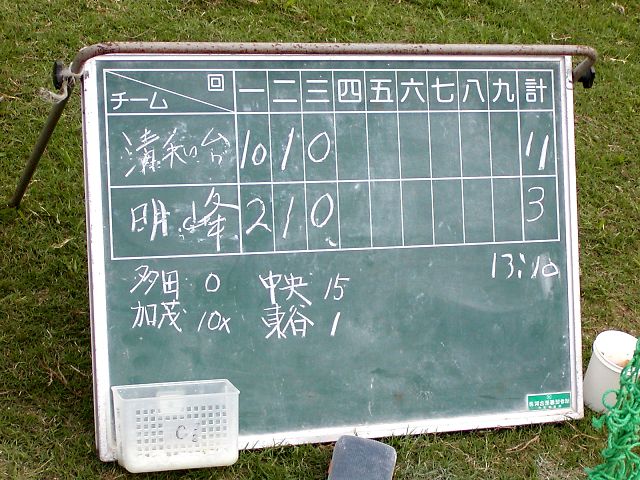 回 一 二 三 四 五 六 七 八 九 計
チーム
清和台 10 1 0 11
明峰 2 1 0 3
13:10
多田 0 中央 15
加茂 10x 東谷 1